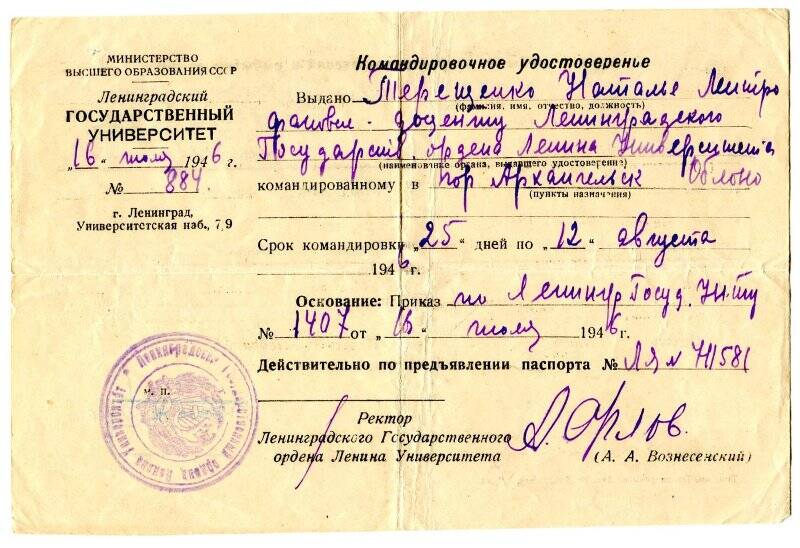 МИНИСТЕРСТВО
ВЫСШЕГО ОБРАЗОВАНИЯ СССР
Ленинградский
ГОСУДАРСТВЕННЫЙ
УНИВЕРСИТЕТ
„16“ июля 1946 г.
№ 884
г. Ленинград,
Университетская наб., 7/9
м. п.
Командировочное удостоверение
Выдано Терещенко Наталье Митро
фановне - доценту Ленинградского
(фамилия, имя, отчество, должность)
Государств. ордена Ленина Университета
(наименование органа, выдавшего удостоверение)
командированному в гор Архангельск Облоно
(пункты назначения)
Срок командировки „25“ дней по „12“ августа
1946 г.
Основание: Приказ по Ленингр Госуд. Ун-ту
№ 1407 от „16“ июля 1946 г.
Действительно по предъявлении паспорта № 711581
Ректор
Ленинградского Государственного
ордена Ленина Университета
(А. А. Вознесенский)